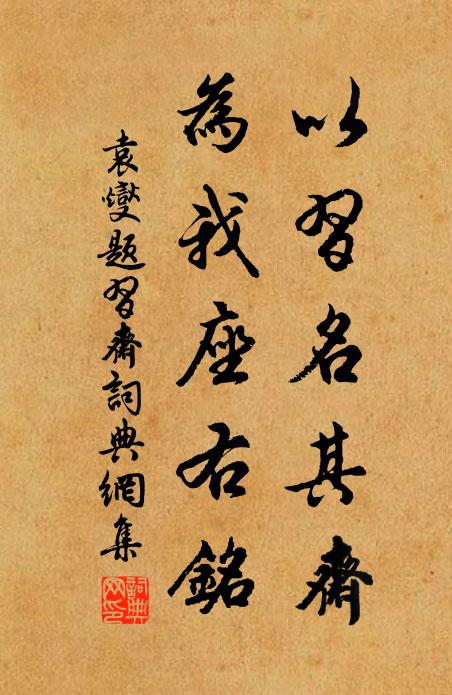 以習名其齋
為我座右銘
袁燮題習齋詞典網集
詞典網印